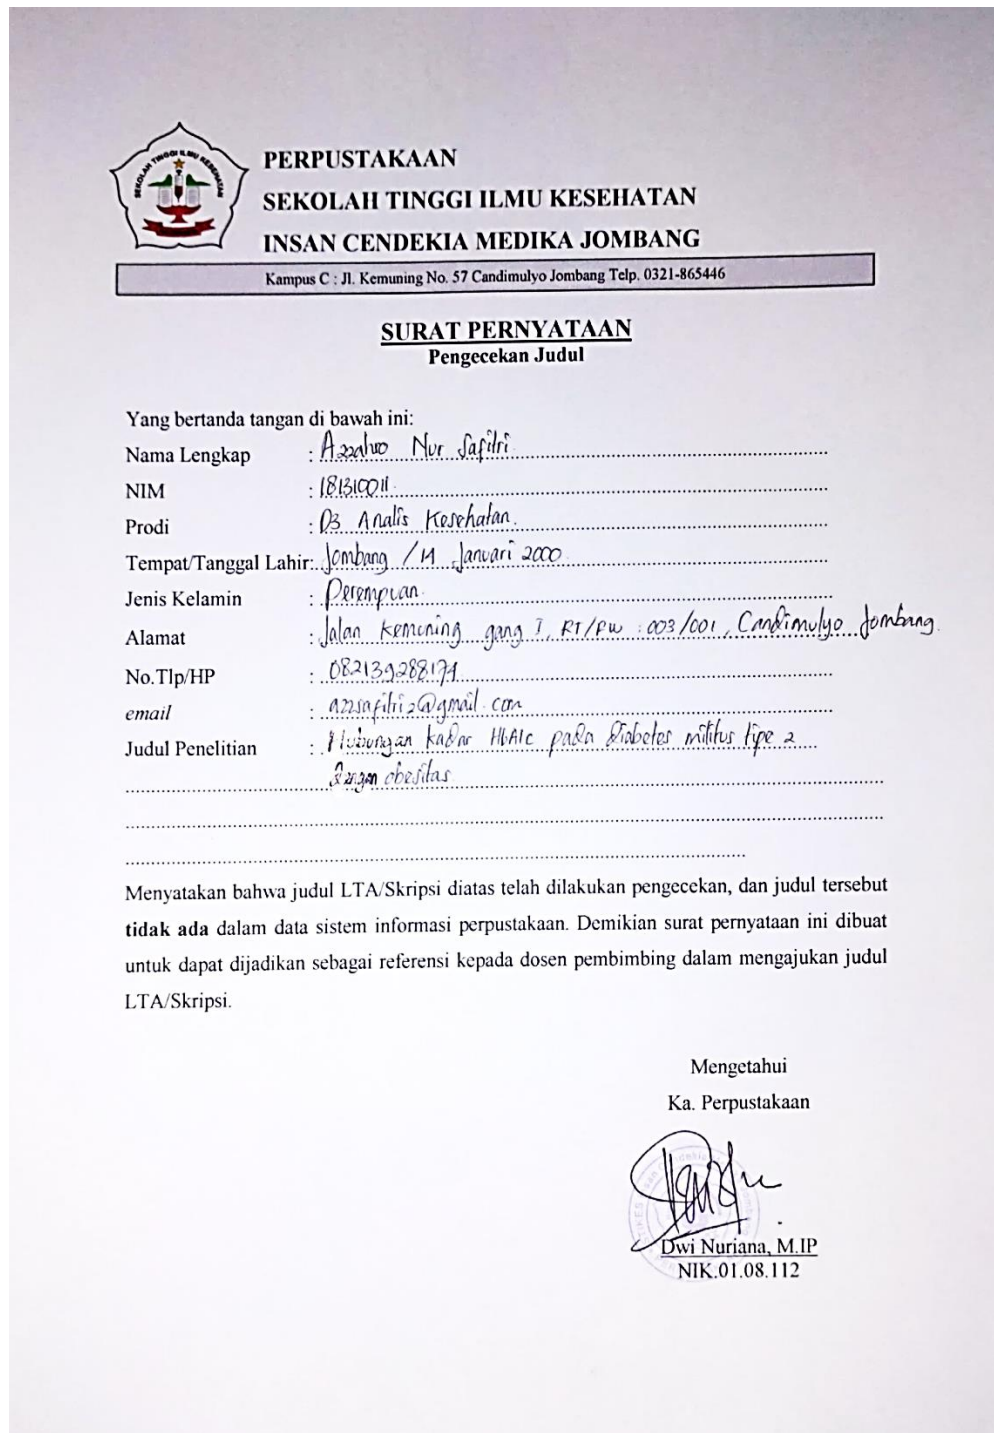 SEKOLAH TINGGI ILMU KESEHATAN
PERPUSTAKAAN
SEKOLAH TINGGI ILMU KESEHATAN
INSAN CENDEKIA MEDIKA JOMBANG
Kampus C : Jl. Kemuning No. 57 Candimulyo Jombang Telp. 0321-865446
SURAT PERNYATAAN
Pengecekan Judul
Yang bertanda tangan di bawah ini:
Nama Lengkap : Nur Safitri
NIM : 181310011
Prodi : D3 Analis Kesehatan
Tempat/Tanggal Lahir: Jombang / Januari 2000
Jenis Kelamin : Perempuan
Alamat : Jalan Kemuning gang I, RT/RW : 003/001, Candimulyo Jombang
No.Tlp/HP : 082139288174
email : azzsafitri2@gmail.com
Judul Penelitian : Hubungan kadar HbA1c pada diabetes militus tipe 2
dengan obesitas
Menyatakan bahwa judul LTA/Skripsi diatas telah dilakukan pengecekan, dan judul tersebut
tidak ada dalam data sistem informasi perpustakaan. Demikian surat pernyataan ini dibuat
untuk dapat dijadikan sebagai referensi kepada dosen pembimbing dalam mengajukan judul
LTA/Skripsi.
Mengetahui
Ka. Perpustakaan
Dwi Nuriana, M.IP
NIK.01.08.112